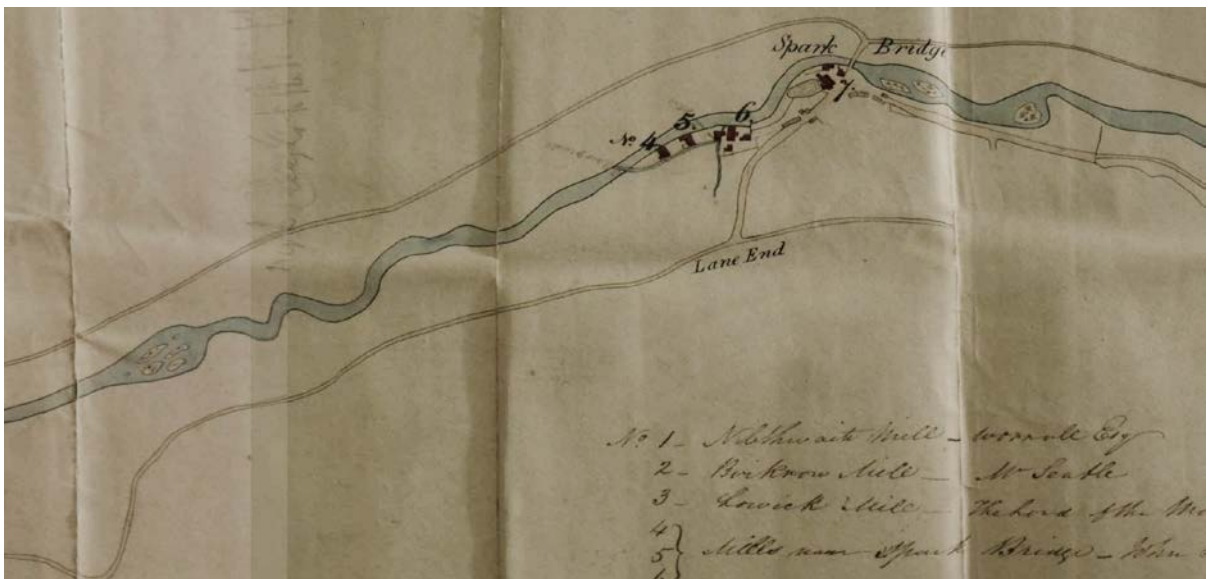 Spark Bridge
6.
7.
5.
No 4
Lane End
No 1 - Nibthwaite Mill - Worrall Esq
2 - Mill - Mr Seatle
3 - Lowick Mill - The Lord of the
4
5 } Mills near Spark Bridge - John
6